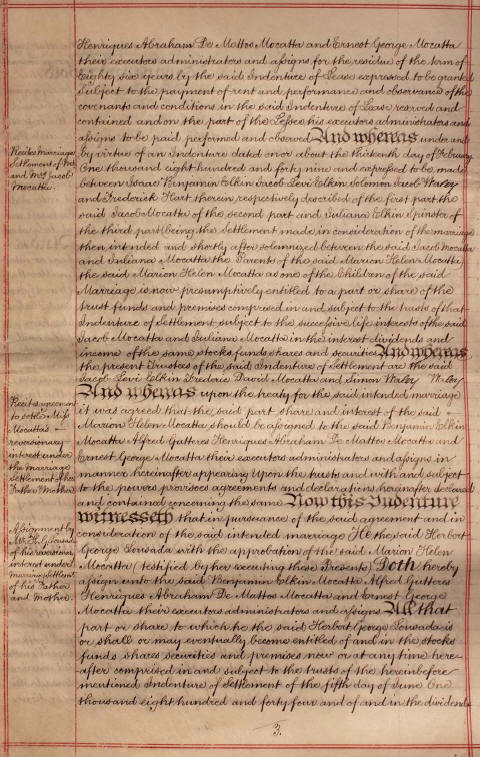 Henriques Abraham De Mattos Mocatta and Ernest George Mocatta
their executors administrators and assigns for the residue of the term of
Eighty six years by the said Indenture of Lease expressed to be granted
Subject to the payment of rent and performance and observance of the
covenants and conditions in the said Indenture of Lease reserved and
contained and on the part of the Lessee his executors administrators and
assigns to be paid performed and observed And whereas under and
Recites Marriage
Settlement of Mr
and Mrs Jacob
Mocatta.
by virtue of an Indenture dated on or about the thirteenth day of February
One thousand eight hundred and forty nine and expressed to be made
between Isaac Benjamin Elkin Jacob Levi Elkin Solomon Jacob Waley
and Frederick Hart therein respectively described of the first part the
said Jacob Mocatta of the second part and Juliana Elkin Spinster of
the third part (being the Settlement made in consideration of the marriage
then intended and shortly after solemnized between the said Jacob Mocatta
and Juliana Mocatta the Parents of the said Marion Helen Mocatta
the said Marion Helen Mocatta as one of the Children of the said
Marriage is now presumptively entitled to a part or share of the
trust funds and premises comprised in and subject to the trusts of that
Indenture of Settlement subject to the successive life interests of the said
Jacob Mocatta and Juliana Mocatta in the interest dividends and
income of the same stocks funds shares and securities And whereas
the present Trustees of the said Indenture of Settlement are the said
Jacob Levi Elkin Frederic David Mocatta and Simon Waley Waley
Recites agreement
to settle Miss
Mocatta's
reversionary
interest under
the marriage
Settlement of her
Father & Mother
And whereas upon the treaty for the said intended marriage
it was agreed that the said part share and interest of the said
Marion Helen Mocatta should be assigned to the said Benjamin Elkin
Mocatta Alfred Gutteres Henriques Abraham De Mattos Mocatta and
Ernest George Mocatta their executors administrators and assigns in
manner hereinafter appearing Upon the trusts and with and subject
to the powers provisoes agreements and declarations hereinafter declared
and contained concerning the same Now this Indenture
Assignment by
Mr H. G. Lousada
of his reversionary
interest under
Marriage Settlemt
of his Father
and Mother.
witnesseth that in pursuance of the said agreement and in
consideration of the said intended marriage He the said Herbert
George Lousada with the approbation of the said Marion Helen
Mocatta (testified by her executing these Presents) Doth hereby
assign unto the said Benjamin Elkin Mocatta Alfred Gutteres
Henriques Abraham De Mattos Mocatta and Ernest George
Mocatta their executors administrators and assigns All that
part or share to which he the said Herbert George Lousada is
or shall or may eventually become entitled of and in the stocks
funds shares securities and premises now or at any time here-
after comprised in and subject to the trusts of the hereinbefore
mentioned Indenture of Settlement of the fifth day of June One
thousand eight hundred and forty four and of and in the dividends
3.